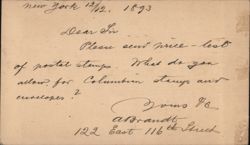 New York 12/12. 1893
Dear Sir
Please send price-list
of postal stamps. What do you
allow for Columbian stamps and
envelopes?
Yours &c
ABrandt
122 East 116th Street